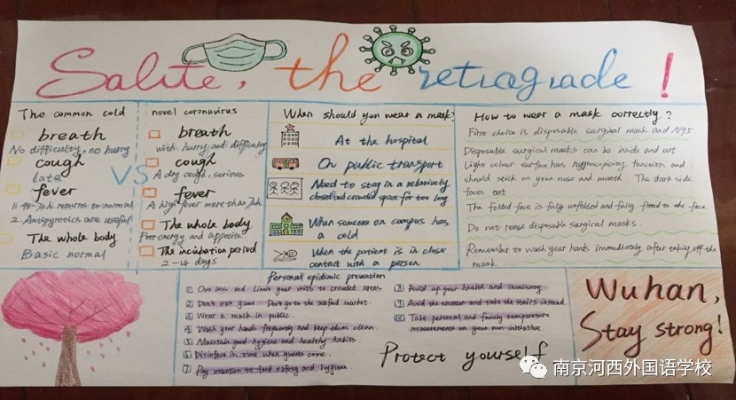 Salute, the retrograde!
The common cold
breath
No difficulty, no hurry
cough
late
fever
2. Antipyretics are useful
The whole body
Basic normal
VS
novel coronavirus
breath
with hurry and difficulty
cough
A dry cough, serious
fever
A high fever more than 72h
The whole body
Poor energy and appetite
The incubation period
2-14 days
When should you wear a mask?
At the hospital
On public transport
Need to stay in a relatively
closed and crowded space for too long
When someone on campus has
a cold
When the patient is in close
contact with a person
How to wear a mask correctly?
First choice is disposable surgical mask and N95
Disposable surgical masks can be inside and out
Light colour surface has hygroscopic function and
should stick on your nose and mouth. The dark side
faces out
The folded face is fully unfolded and fully fitted to the face
Do not reuse disposable surgical masks
Remember to wash your hands immediately after taking off the
mask
Personal epidemic prevention
① Go out less and limit your visits to crowded areas
② Don't eat game Don't go to the seafood market
③ Wear a mask in public
④ Wash your hands frequently and keep them clean
⑤ Maintain good hygiene and healthy habits
⑥ Disinfect in time when guests come
⑦ Pay attention to food safety and hygiene
⑧ Build up your health and immunity
⑨ Avoid the elevator and take the stairs instead
⑩ Take personal and family temperature
measurement on your own initiative
Protect yourself
Wuhan,
Stay strong!
南京河西外国语学校